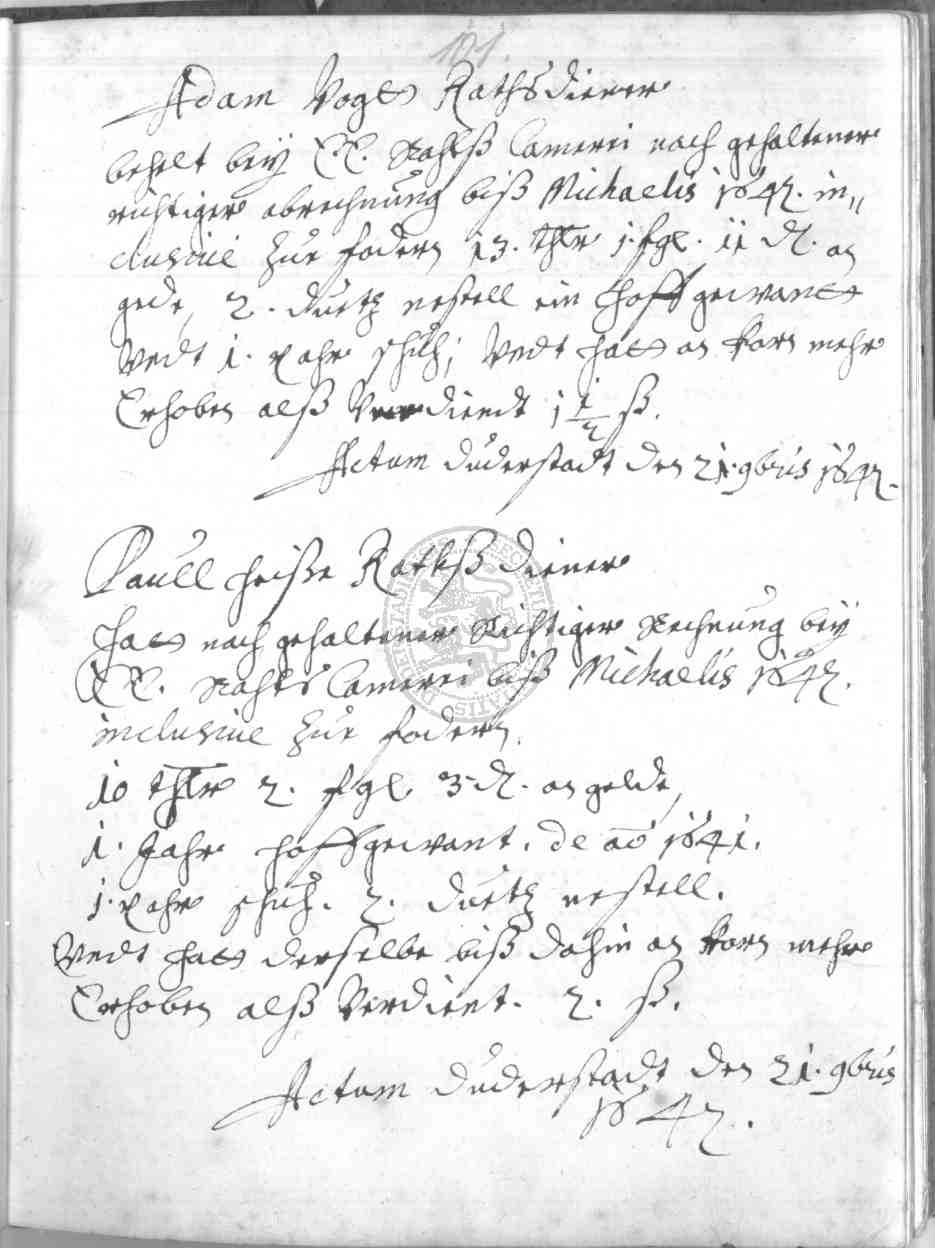 101.
Adam Vogt Rathsdiener
behelt bey E. E. Rahtß Camerei nach gehaltener
richtiger abrechnung biß Michaelis 1642. in„
clusiue zue fodern 13. thlr 1. ßgl. 11 d. an
gede, 2. duetz nestell ein hoffgewandt
Vndt 1. pahr schuh; Vndt hatt an korn mehr
Erhoben alß Verdiendt 1 1/2 ß.
Actum duderstadt den 21. 9bris 1642.
Paull heiße Rathßdiener
hatt nach gehaltener Richtiger Rechnung bey
E. E. Rahts Camerei biß Michaelis 1642.
inclusiue zue fodern.
10 thlr 2. ßgl. 3 d. an gelde,
1. Jahr hoffgewant. de aõ 1641.
1. pahr schuh. 2. duetz nestell.
Vndt hatt derselbe biß dahin an korn mehr
Erhoben alß Verdient. 2. ß.
Actum duderstadt den 21. 9bris
1642.